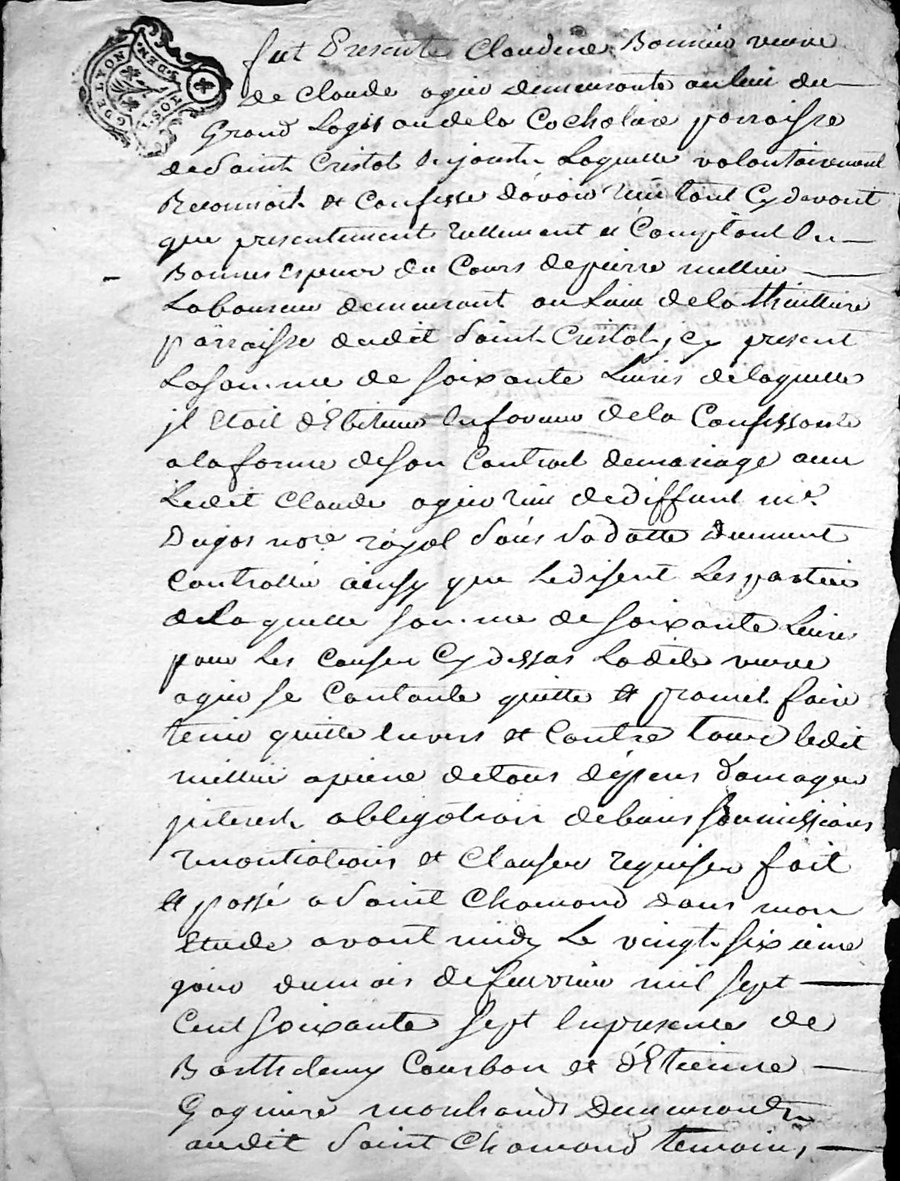 G DE LYON
2 DEN.
fut Presente Claudine Bonnier veuve
de Claude ogier demeurante au lieu du
Grand Logis ou de la Cocholaire parroisse
de Saint Cristot laquelle volontairement
Reconnoit et Confesse d'avoir tant Cy devant
que presentement reellement et Comptant En
Bonnes Especes du Cours de pierre mellier
Laboureur demeurant au Lieu de la
parroisse dudit Saint Cristot jcy present
La somme de soixante Livres de laquelle
jl Etoit d'Ebiteur En faveur de la Confessante
a la forme de son Contrat de mariage avec
Ledit Claude ogier reçu de deffunt me
Dugos nore royal sous sa datte duement
Controllé ainsy que Le disent Les parties
de Laquelle somme de soixante Livres
pour Les Causes Cy dessus Ladite veuve
ogier se Contante quitte et promet faire
tenir quitte Envers et Contre tous ledit
mellier a peine de tous d'épens domages
jnterets obligation de biens soumissions
renontiations et Clauses requises fait
et passé a Saint Chamond dans mon
Etude avant midy Le vingt sixieme
jour du mois de fevrier mil sept
Cent soixante sept En presence de
Barthelemy Courbon et d'Etienne
Gagniere marchands demeurants
audit Saint Chamond temoins